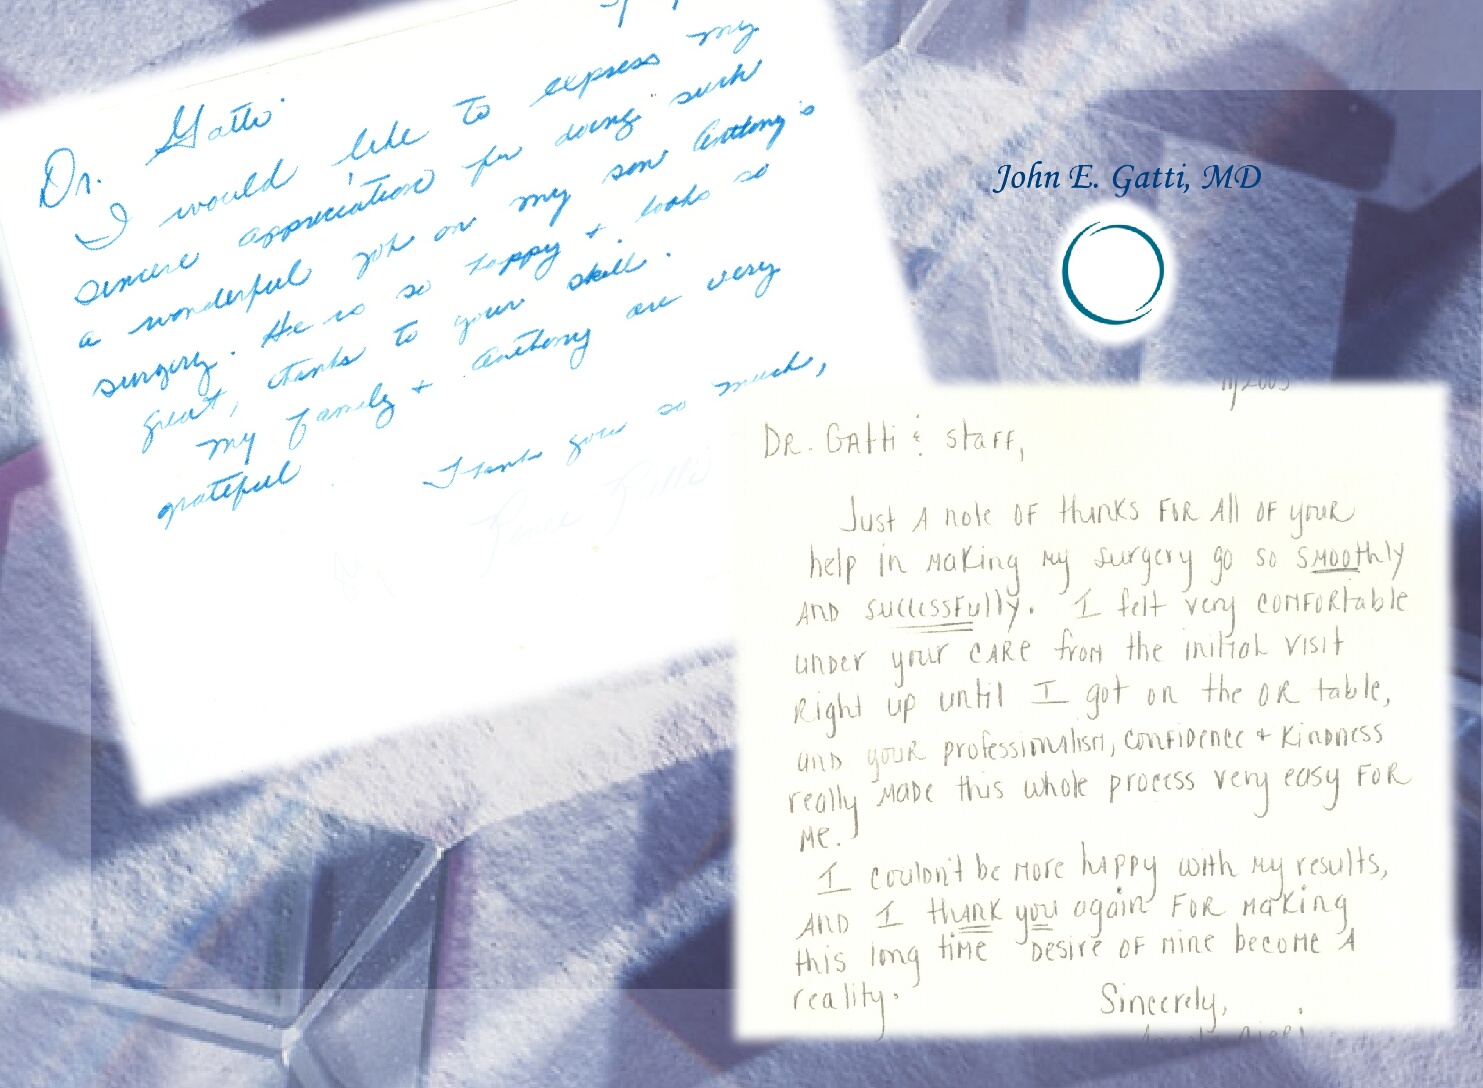 Dr. Gatti
I would like to express my
sincere appreciation for doing such
a wonderful job on my son Anthony's
surgery. He is so happy + looks so
great, thanks to your skill.
My family + Anthony are very
grateful.
Thank you so much,
John E. Gatti, MD
Dr. Gatti & staff,
Just a note of thanks for all of your
help in making my surgery go so smoothly
and successfully. I felt very comfortable
under your care from the initial visit
right up until I got on the OR table,
and your professionalism, confidence + kindness
really made this whole process very easy for
me.
I couldn't be more happy with my results,
and I thank you again for making
this long time desire of mine become a
reality.
Sincerely,